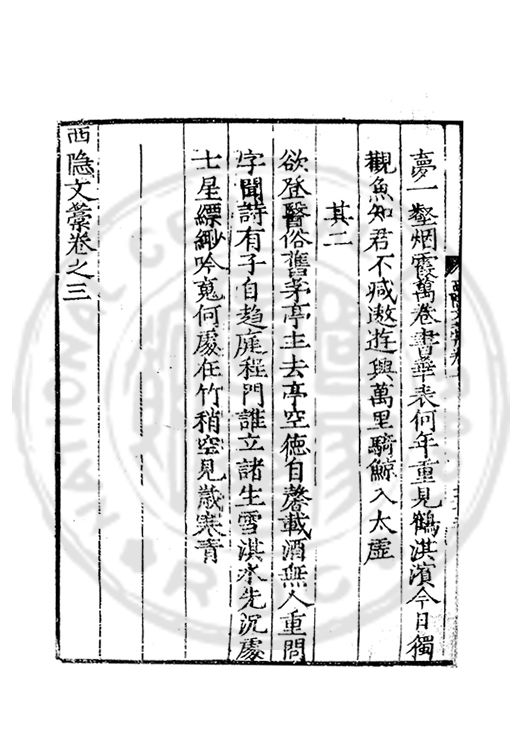 夢一壑烟霞萬卷書華表何年重見鶴淇濱今日獨
觀魚知君不減遨遊興萬里騎鯨入太虛
其二
欲登醫俗舊茅亭主去亭空徳自馨載酒無人重問
字聞詩有子自趨庭程門誰立諸生雪淇水先沉處
士星縹緲吟䰟何處在竹稍空見歳寒青
西隐文藁卷之三